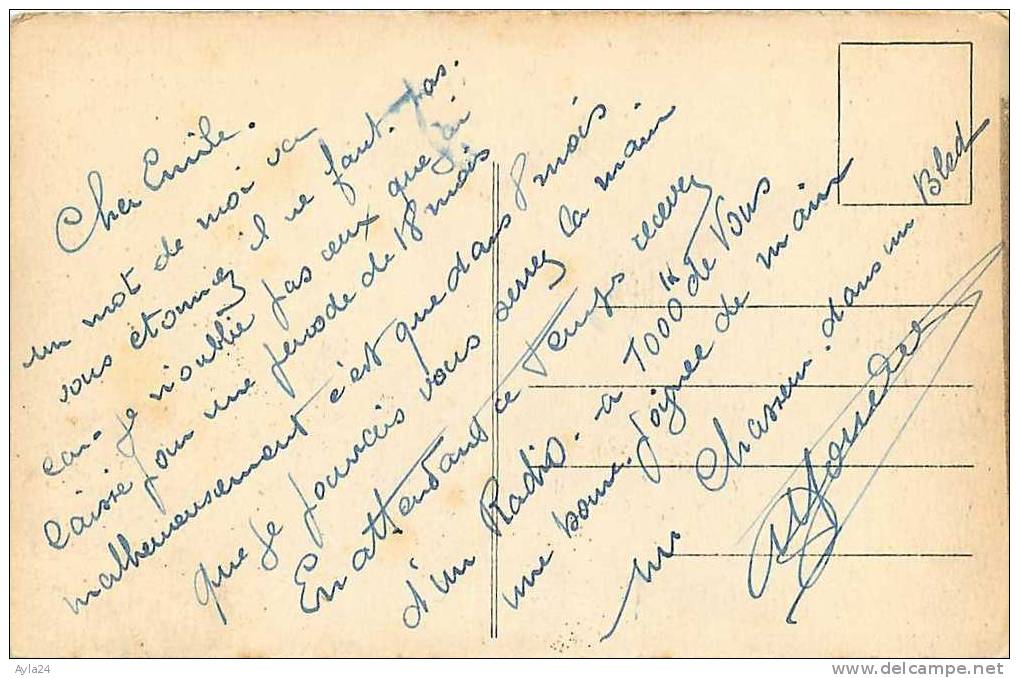 Cher Emile.
un mot de moi va
vous étonnez il ne faut pas.
car je n'oublie pas ceux que j'ai
laissé pour une periode de 18 mois
malheureusement c'est que dans 8 mois
que je pourrais vous serrez la main
En attendant ce temps recevez
d'un Radio. à 1000 K de Vous
une bonne poignée de main
un Chasseur. dans un Bled
Ayla24
www.delcampe.net